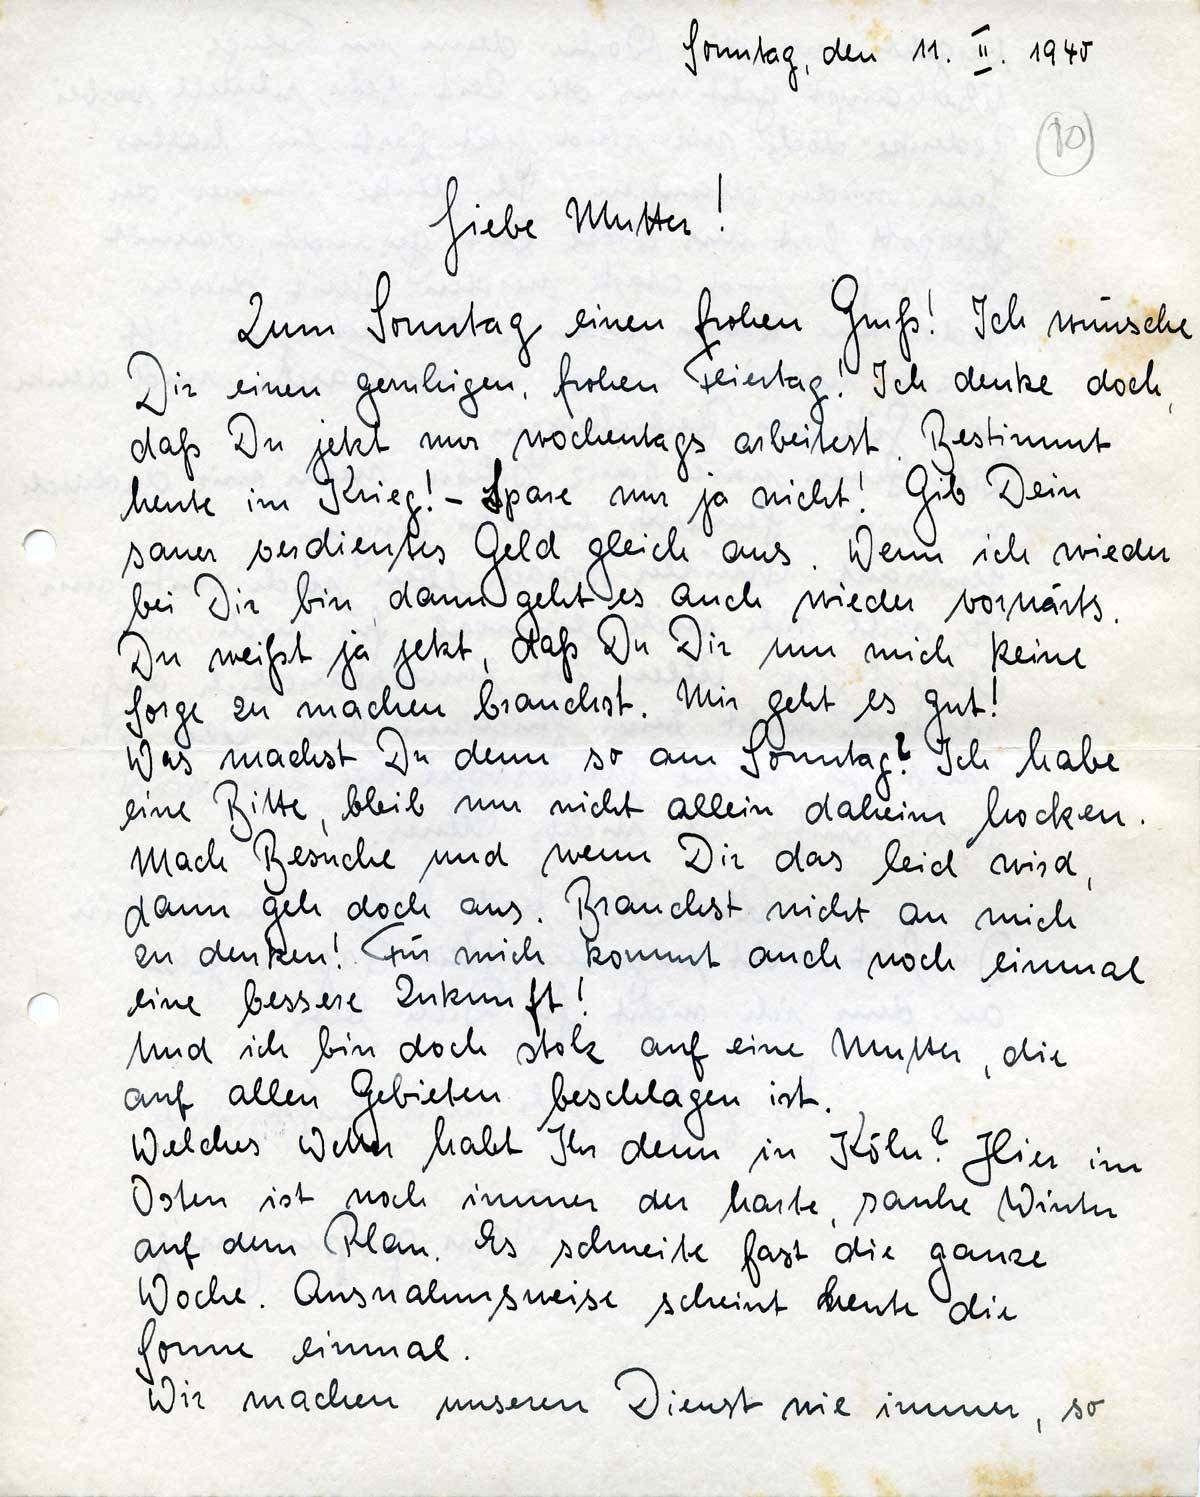 Sonntag, den 11. II. 1940
10
Liebe Mutter!
Zum Sonntag einen frohen Gruß! Ich wünsche
Dir einen geruhigen, frohen Feiertag! Ich denke doch,
daß Du jetzt nur wochentags arbeitest. Bestimmt
heute im Krieg! – Spare nur ja nicht! Gib Dein
sauer verdientes Geld gleich aus. Wenn ich wieder
bei Dir bin, dann geht es auch wieder vorwärts.
Du weißt ja jetzt, daß Du Dir um mich keine
Sorge zu machen brauchst. Mir geht es gut!
Was machst Du denn so am Sonntag? Ich habe
eine Bitte, bleib nur nicht allein daheim hocken.
Mach Besuche und wenn Dir das leid wird,
dann geh doch aus. Brauchst nicht an mich
zu denken! Für mich kommt auch noch einmal
eine bessere Zukunft!
Und ich bin doch stolz auf eine Mutter, die
auf allen Gebieten beschlagen ist.
Welches Wetter habt Ihr denn in Köln? Hier im
Osten ist noch immer der harte, rauhe Winter
auf dem Plan. Es schneite fast die ganze
Woche. Ausnahmsweise scheint heute die
Sonne einmal.
Wir machen unseren Dienst wie immer, so